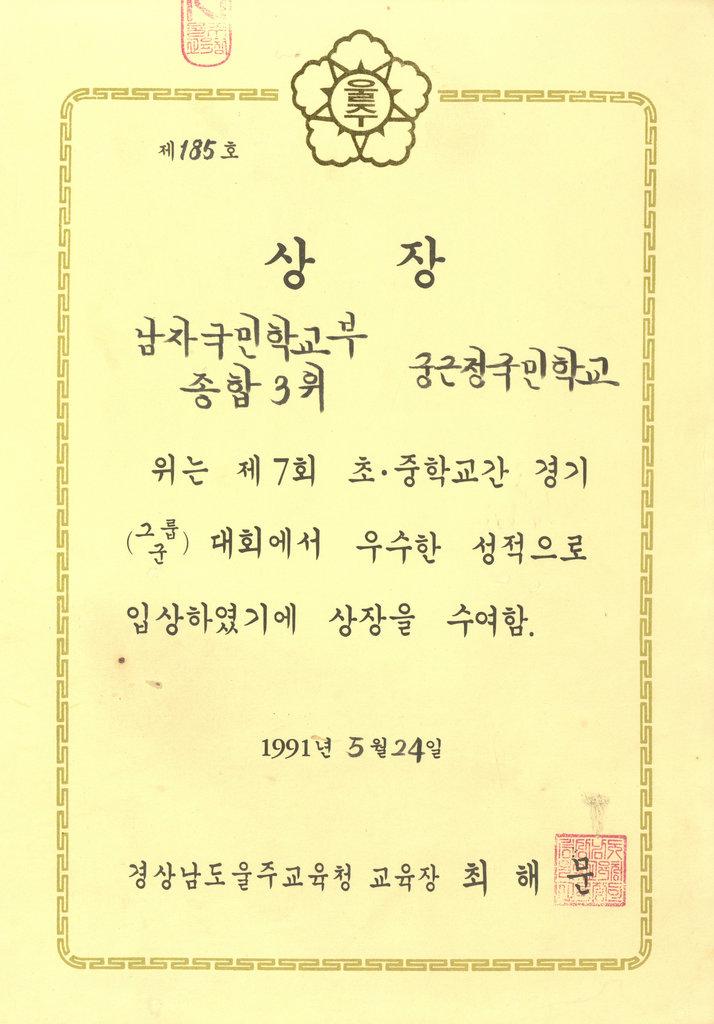 울주
제 185 호
상 장
남자국민학교부
종합 3 위
궁근정국민학교
위는 제 7 회 초·중학교간 경기
(그룹
군) 대회에서 우수한 성적으로
입상하였기에 상장을 수여함.
1991년 5월 24일
경상남도울주교육청 교육장 최 해 문